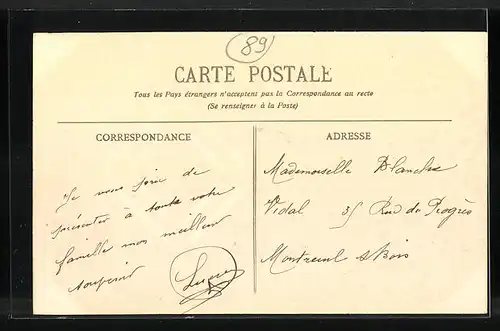 89
CARTE POSTALE
Tous les Pays étrangers n'acceptent pas la Correspondance au recto
(Se renseigner à la Poste)
CORRESPONDANCE
Je vous prie de
présenter à toute votre
famille mes meilleur
souvenir
ADRESSE
Mademoiselle Blanche
Vidal 35 Rue du Progrès
Montreuil s/Bois